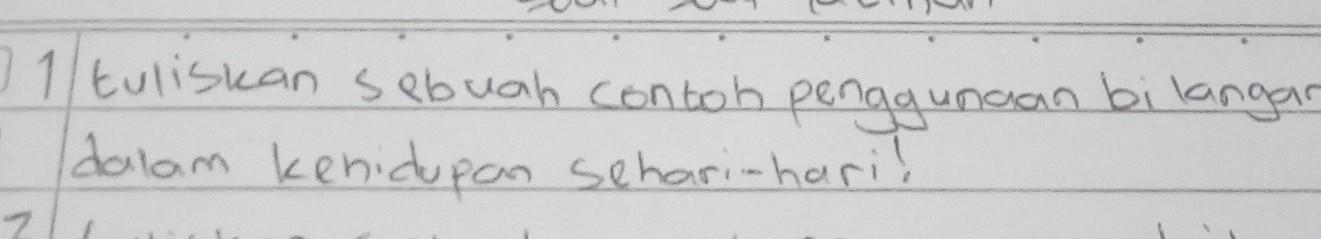 1 tuliskan sebuah contoh penggunaan bilangan
dalam kehidupan sehari-hari!
2